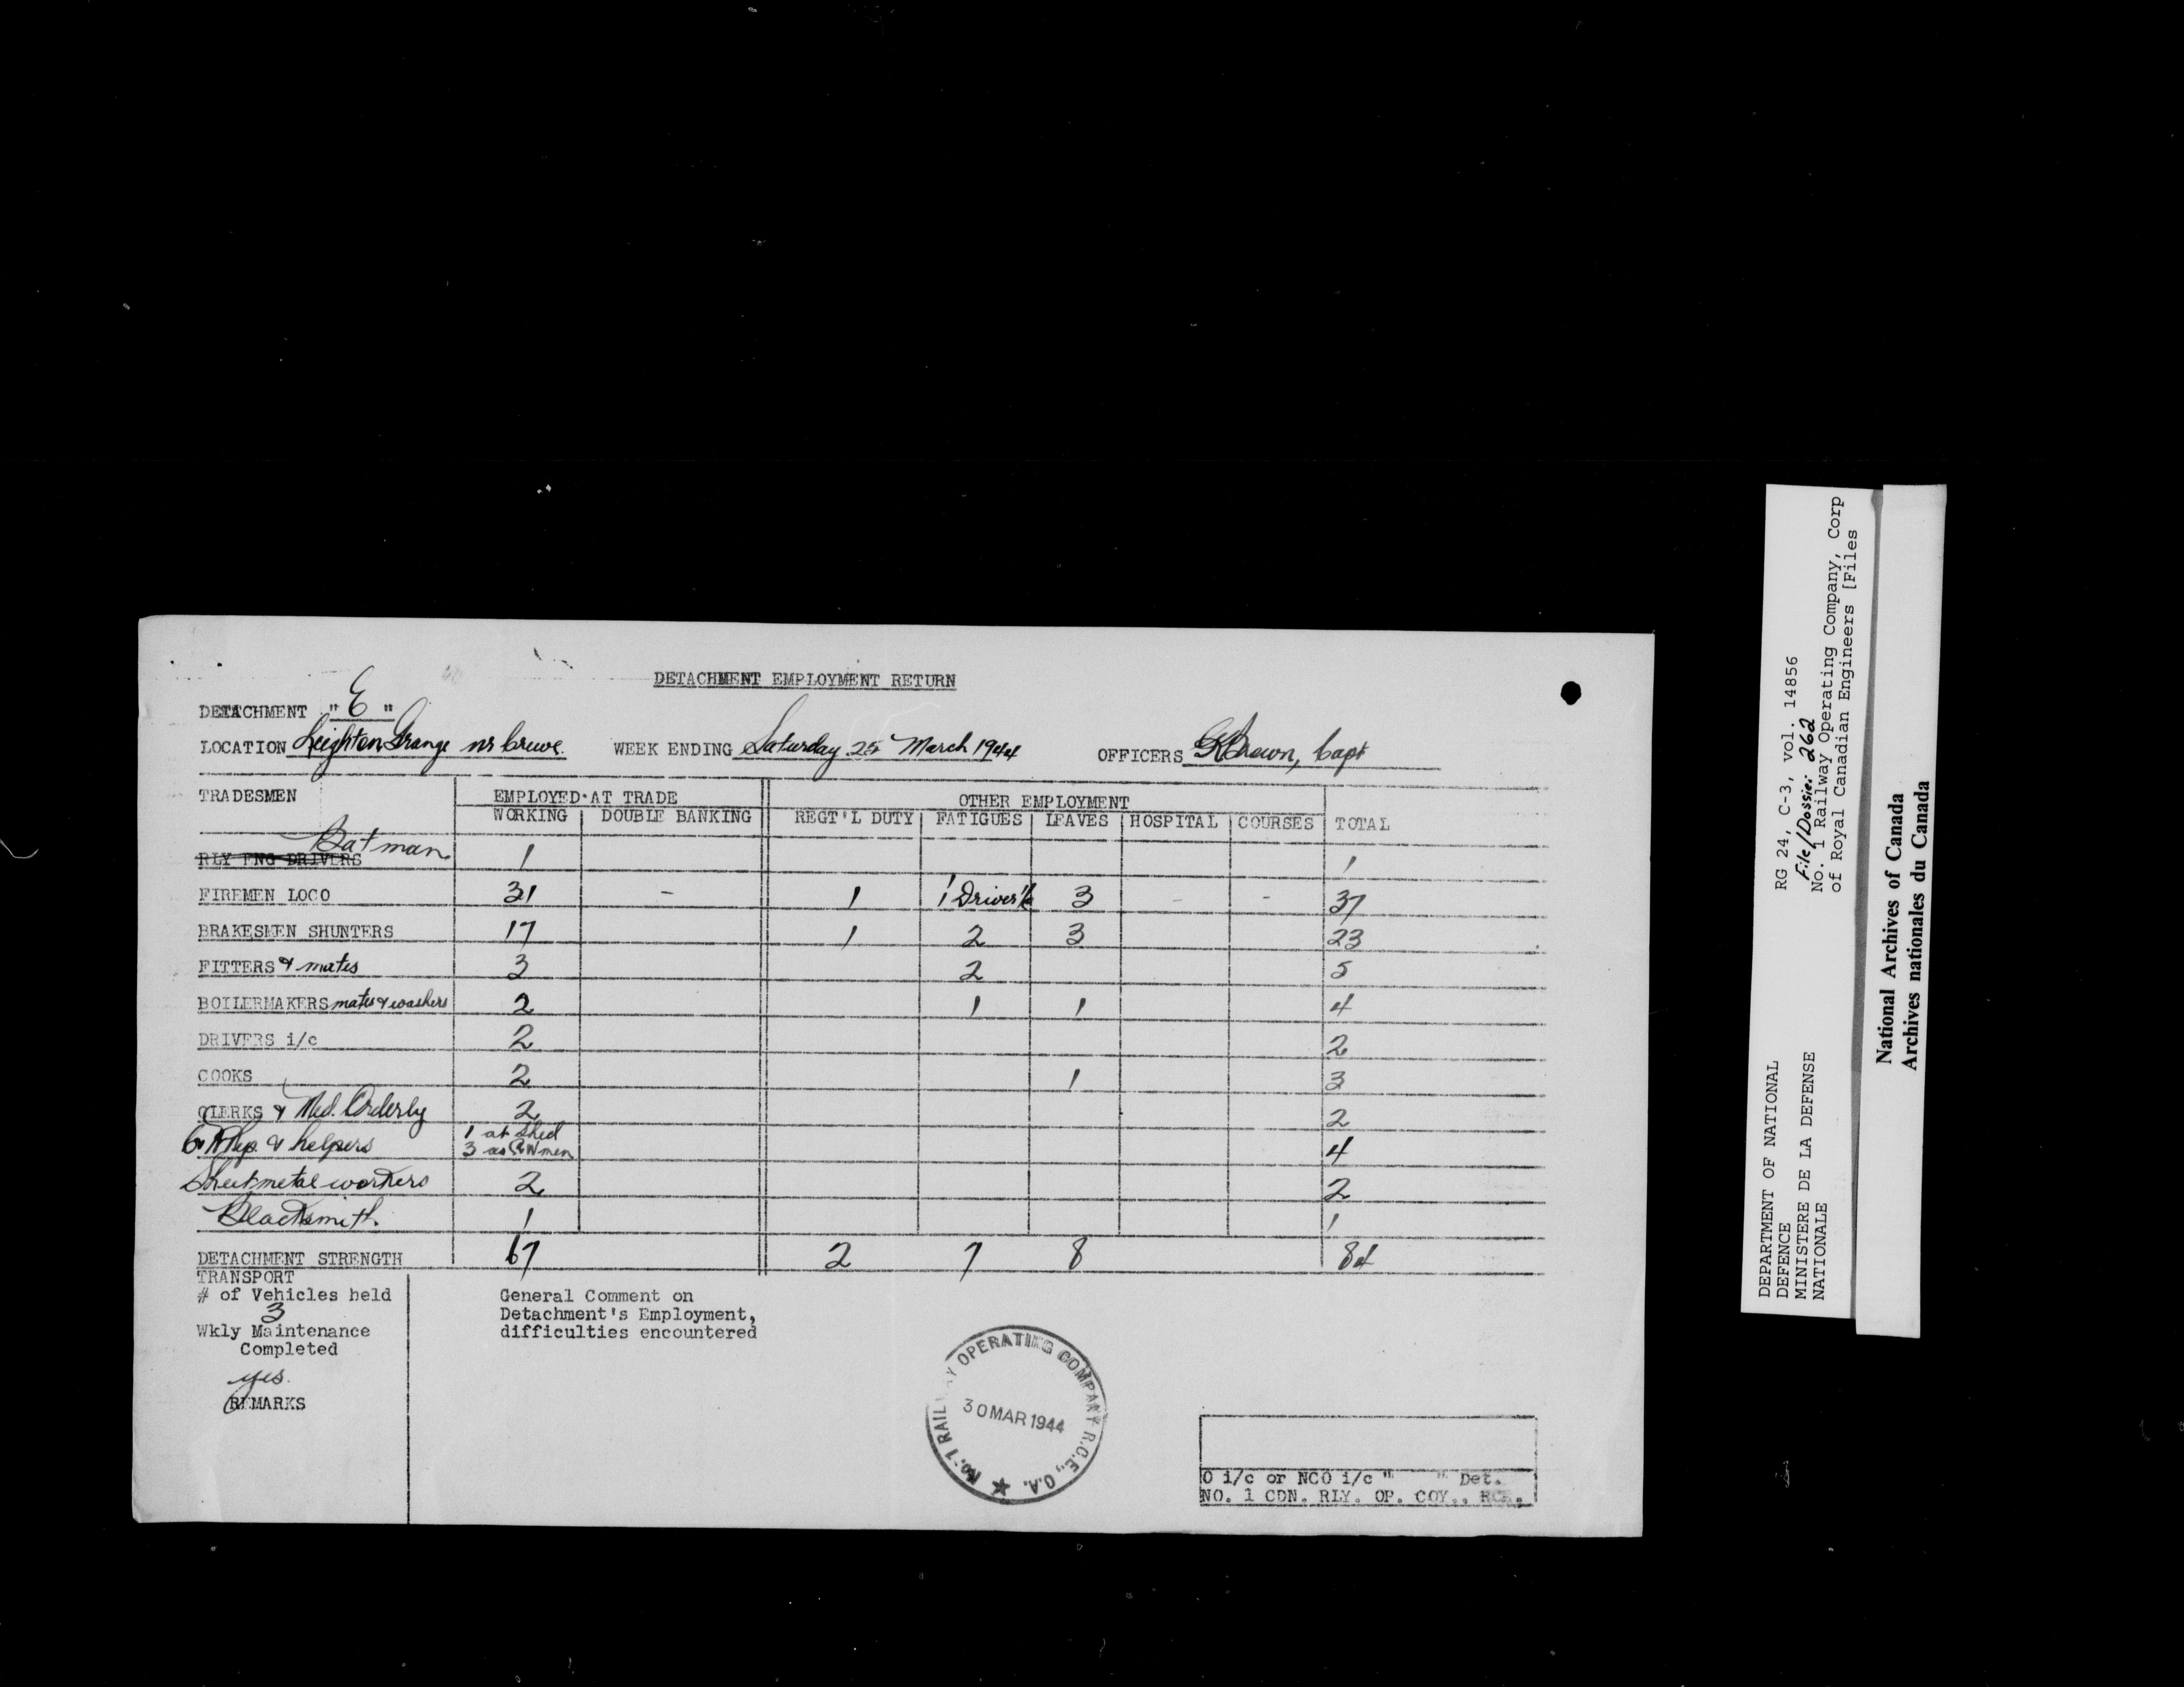 DETACHMENT EMPLOYMENT RETURN
DETACHMENT "E"
LOCATION Leighton Grange nr Crewe. WEEK ENDING Saturday 25 March 1944 OFFICERS Brown, Capt
TRADESMEN EMPLOYED AT TRADE OTHER EMPLOYMENT
WORKING DOUBLE BANKING REGT'L DUTY FATIGUES LEAVES HOSPITAL COURSES TOTAL
Batman
RLY ENG DRIVERS 1 1
FIREMEN LOCO 31 - 1 1 1 Driver i/c 3 - - 37
BRAKESMEN SHUNTERS 17 1 2 3 23
FITTERS & mates 3 2 5
BOILERMAKERS mates & washers 2 1 1 4
DRIVERS i/c 2 2
COOKS 2 1 3
CLERKS & Med. Orderly 2 2
& helpers 1 at shed 3 as C&W men 4
Sheetmetal workers 2 2
Blacksmith. 1 1
DETACHMENT STRENGTH 67 2 7 8 84
TRANSPORT
# of Vehicles held
3
Wkly Maintenance
Completed
yes.
REMARKS
General Comment on
Detachment's Employment,
difficulties encountered
No. 1 RAILWAY OPERATING COMPANY R.C.E., O.A. ★
30 MAR 1944
O i/c or NCO i/c " " Det.
NO. 1 CDN. RLY. OP. COY., RCE.
DEPARTMENT OF NATIONAL
DEFENCE
MINISTERE DE LA DEFENSE
NATIONALE
RG 24, C-3, vol. 14856
File/Dossier 262
No. 1 Railway Operating Company, Corp
of Royal Canadian Engineers [Files
National Archives of Canada
Archives nationales du Canada